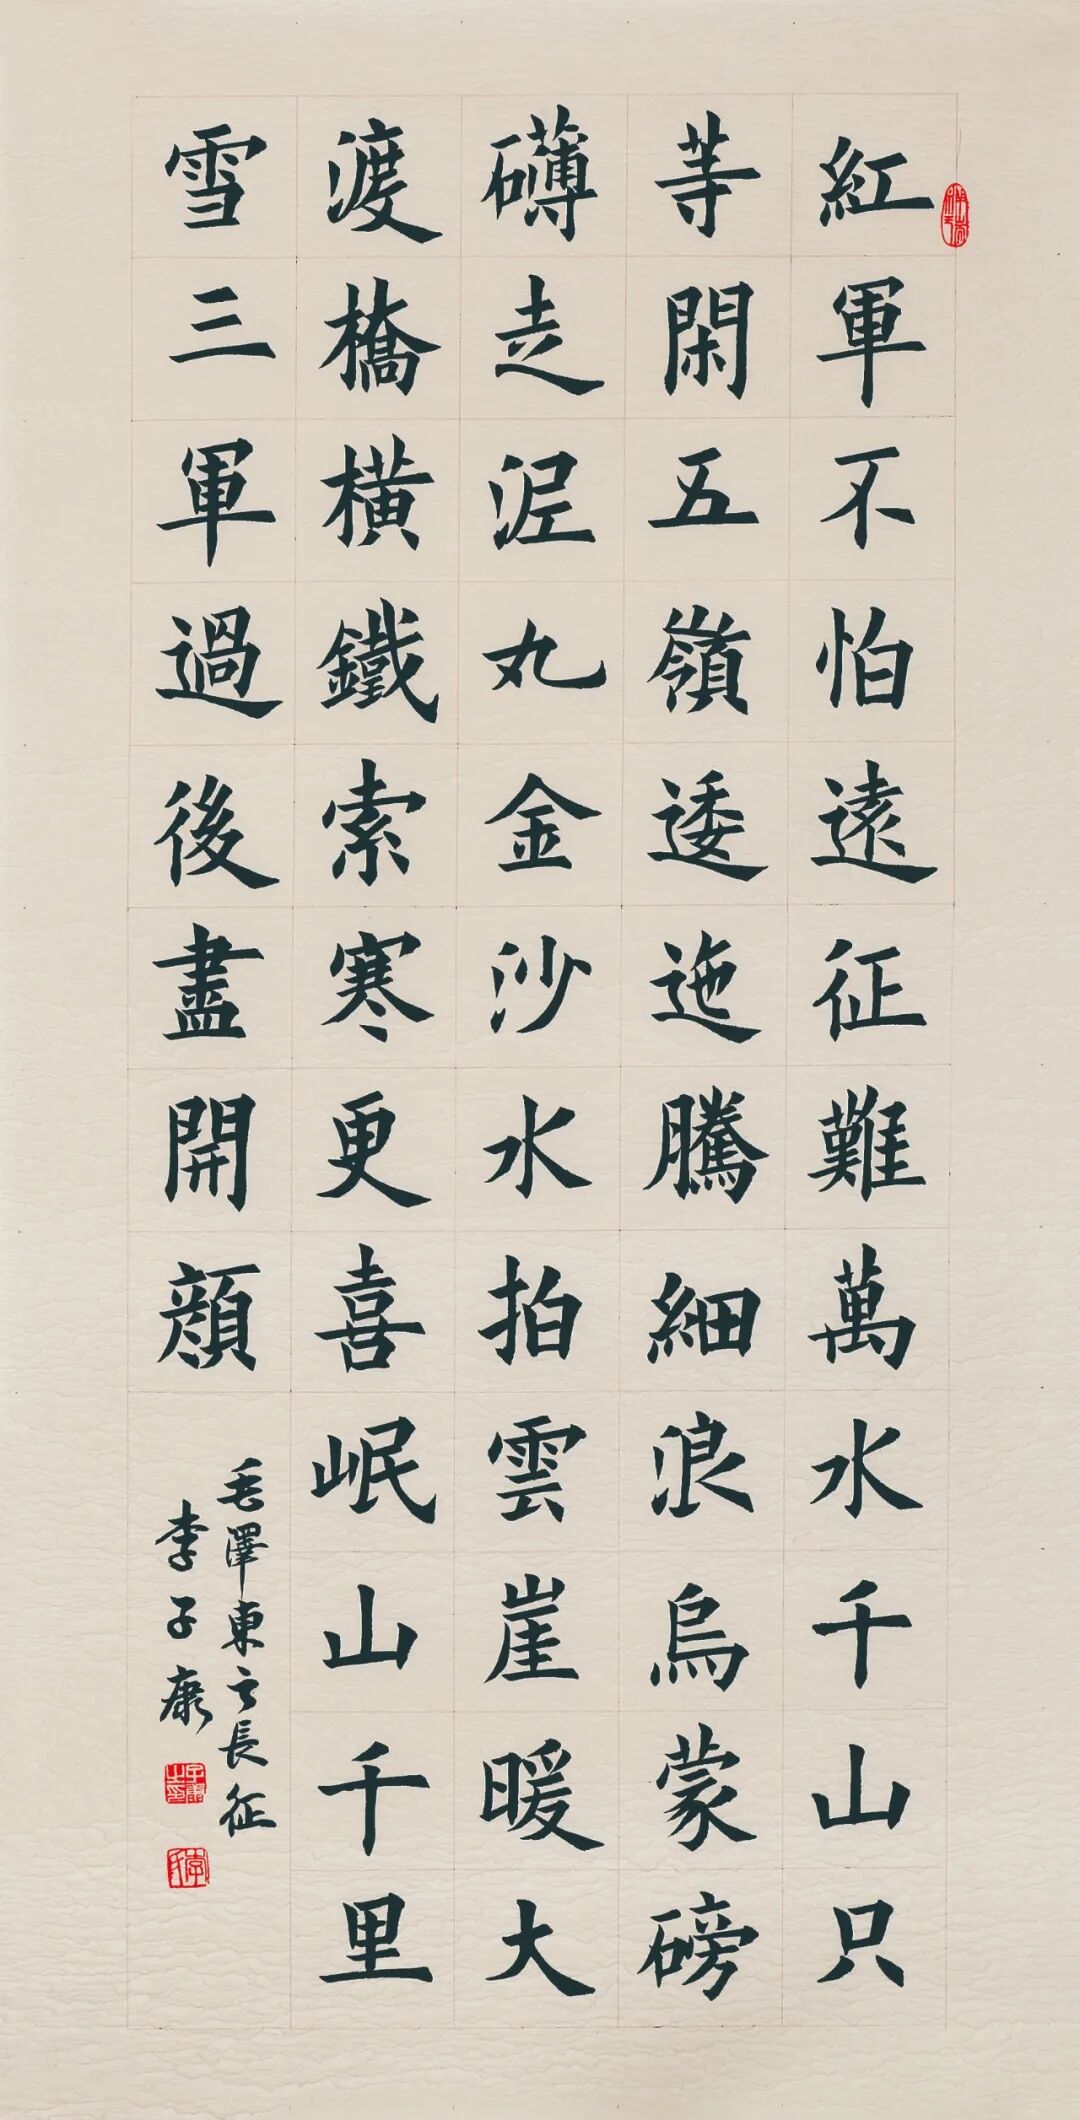 紅軍不怕遠征難萬水千山只
等閑五嶺逶迤騰細浪烏蒙磅
礴走泥丸金沙水拍雲崖暖大
渡橋橫鐵索寒更喜岷山千里
雪三軍過後盡開顏
毛澤東之長征
李子康